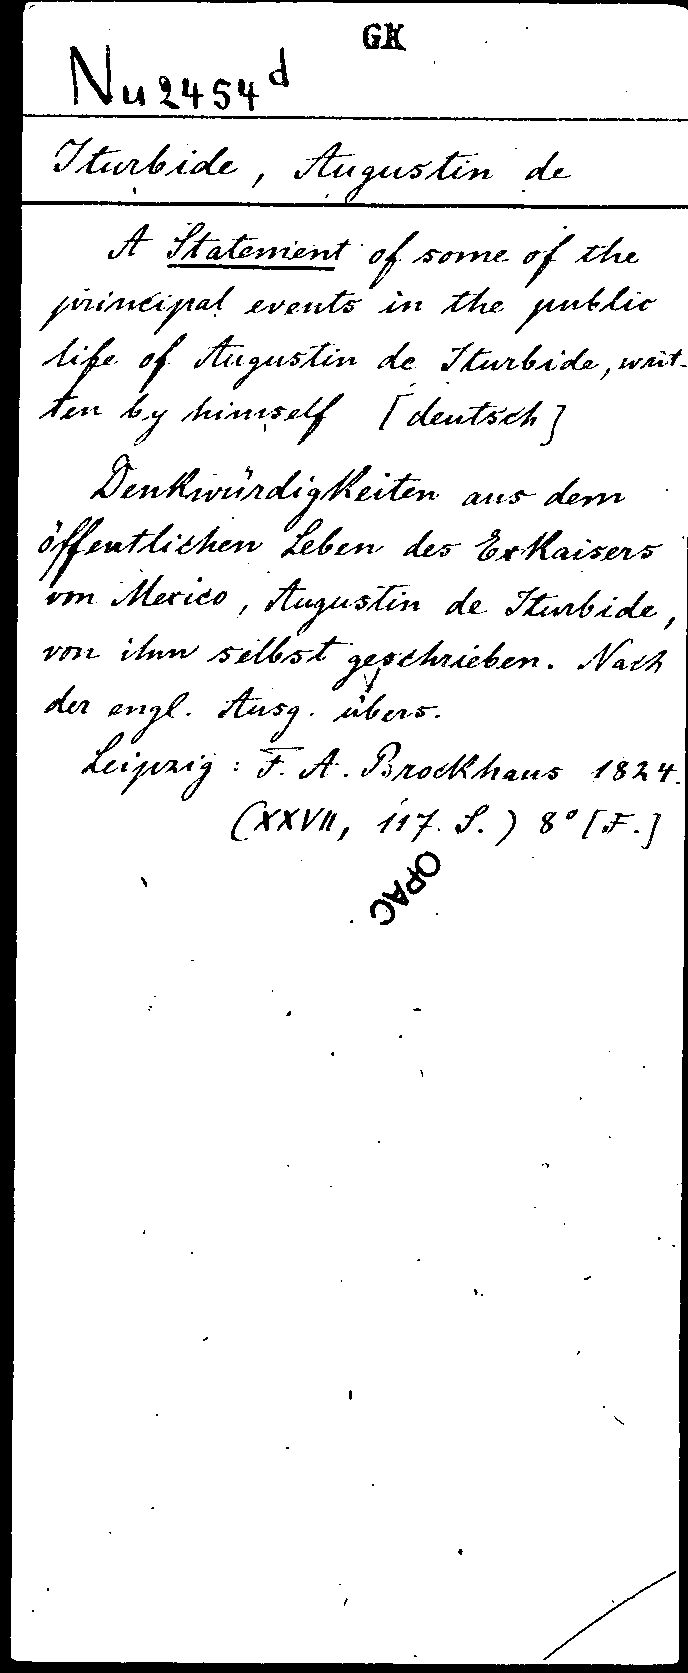 GK
Nu 2454 d
Iturbide, Augustin de
A Statement of some of the
principal events in the public
life of Augustin de Iturbide, writ-
ten by himself [deutsch]
Denkwürdigkeiten aus dem
öffentlichen Leben des ExKaisers
von Mexico, Augustin de Iturbide,
von ihm selbst geschrieben. Nach
der engl. Ausg. übers.
Leipzig: F. A. Brockhaus 1824.
(XXVII, 117 S.) 8° [F.]
OPAC